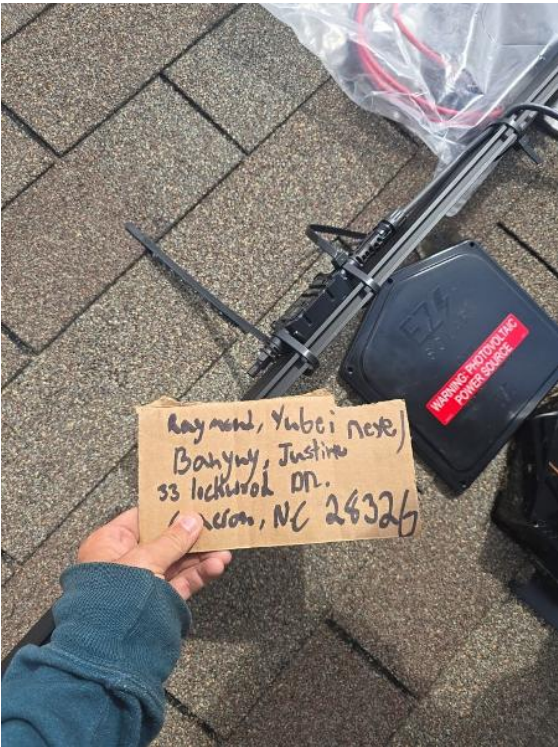 EZS
WARNING: PHOTOVOLTAIC
POWER SOURCE
Raymond, Yubei
Justin
33 lockwood DR.
NC 28326